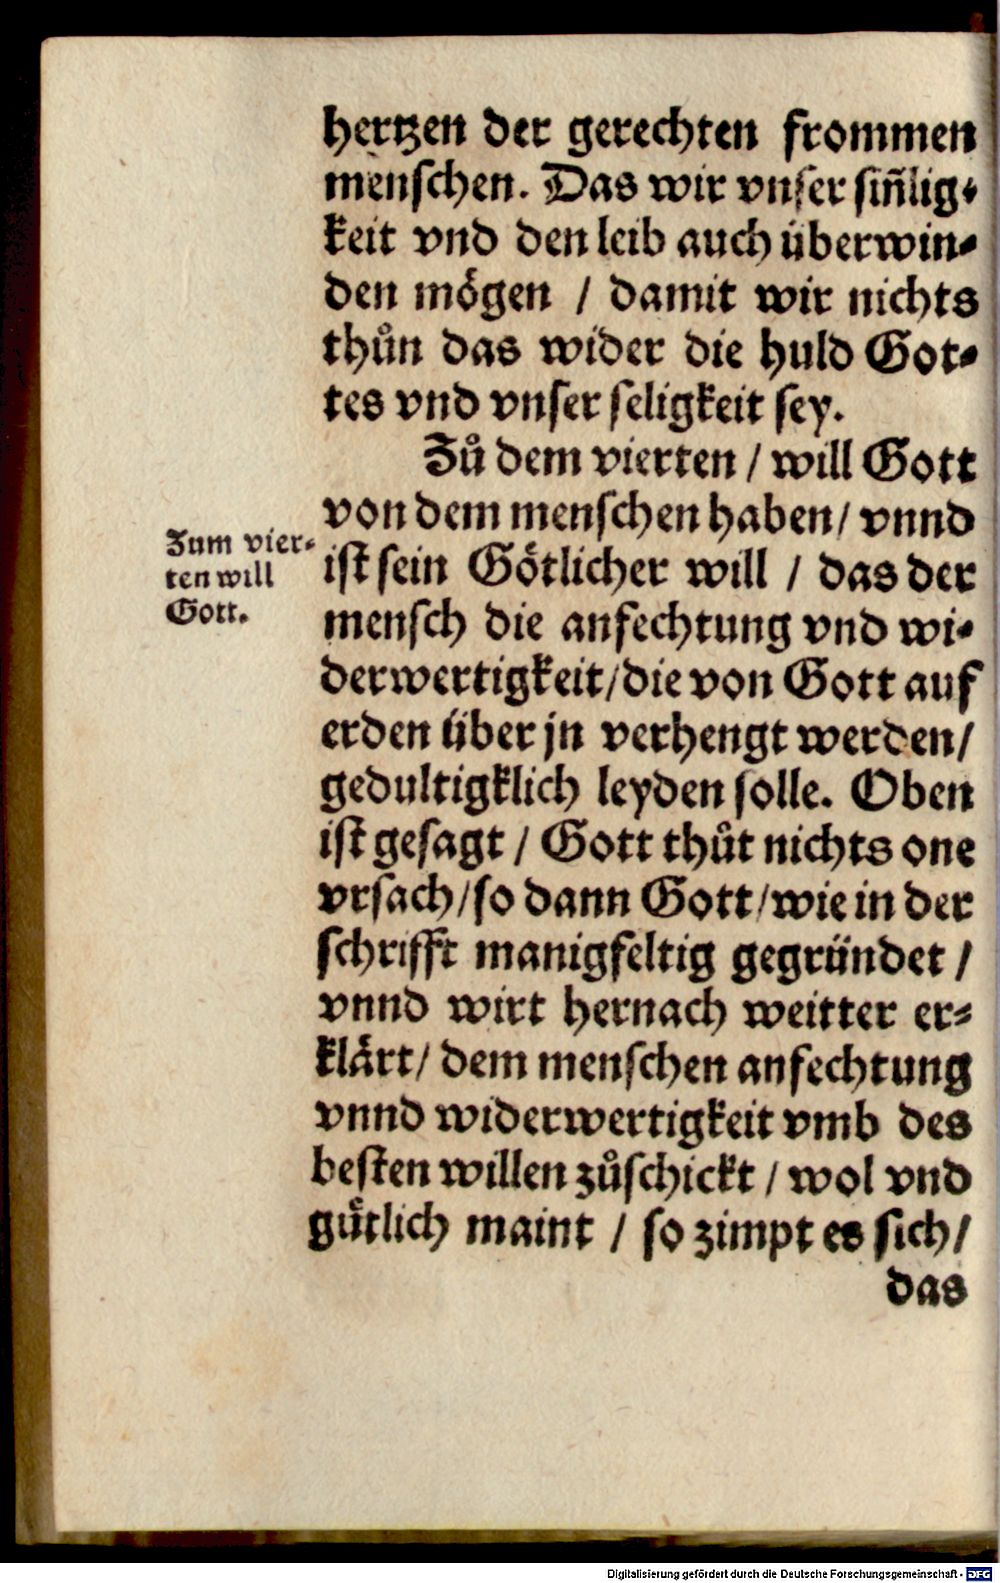 hertzen der gerechten frommen
menschen. Das wir vnser siñlig⸗
keit vnd den leib auch überwin⸗
den mögen / damit wir nichts
thůn das wider die huld Got⸗
tes vnd vnser seligkeit sey.
Zů dem vierten / will Gott
von dem menschen haben / vnnd
Zum vier⸗
ten will
Gott.
ist sein Götlicher will / das der
mensch die anfechtung vnd wi⸗
derwertigkeit / die von Gott auf
erden über jn verhengt werden /
gedultigklich leyden solle. Oben
ist gesagt / Gott thůt nichts one
vrsach / so dann Gott / wie in der
schrifft manigfeltig gegründet /
vnnd wirt hernach weitter er⸗
klärt / dem menschen anfechtung
vnnd widerwertigkeit vmb des
besten willen zůschickt / wol vnd
gütlich maint / so zimpt es sich /
das
Digitalisierung gefördert durch die Deutsche Forschungsgemeinschaft - DFG